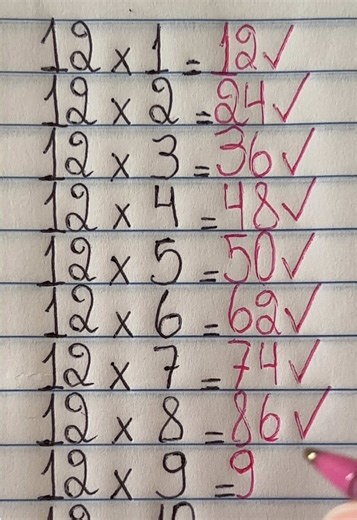 12 × 1 = 12 ✓
12 × 2 = 24 ✓
12 × 3 = 36 ✓
12 × 4 = 48 ✓
12 × 5 = 50 ✓
12 × 6 = 62 ✓
12 × 7 = 74 ✓
12 × 8 = 86 ✓
12 × 9 = 9
12 10